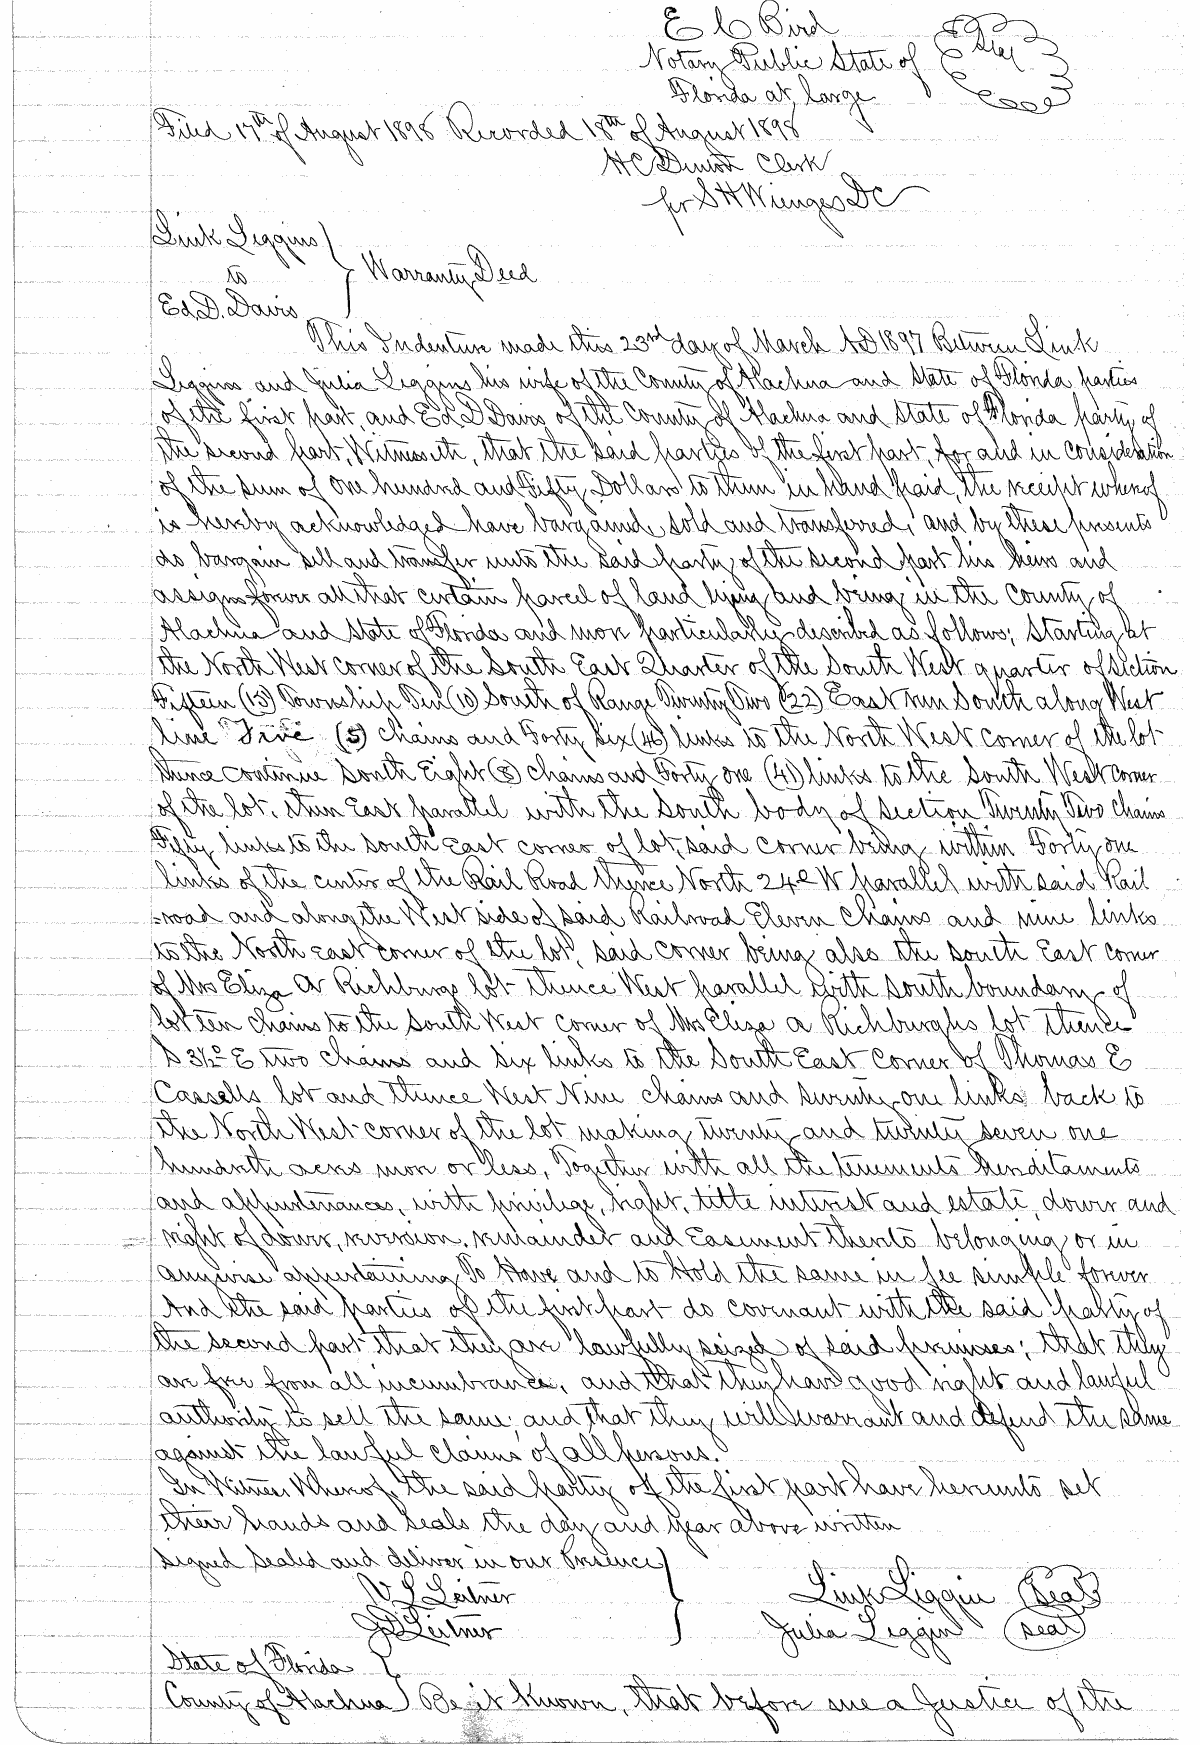 E C Bird
Notary Public State of Seal
Florida at large
Filed 17th of August 1898 Recorded 18th of August 1898
H C Denton Clerk
for S H Wienges DC
Link Liggins
to
Warranty Deed
Ed. D. Davis
This Indenture made this 23rd day of March AD 1897 Between Link
Liggins and Julia Liggins his wife of the County of Alachua and State of Florida parties
of the first part, and Ed. D Davis of the County of Alachua and State of Florida party of
the second part, Witnesseth, that the said parties of the first part, for and in consideration
of the sum of One hundred and Fifty Dollars to them in hand paid, the receipt whereof
is hereby acknowledged have bargained, sold and transferred, and by these presents
do bargain sell and transfer unto the said party of the second part his heirs and
assigns forever all that certain parcel of land lying and being in the County of
Alachua and State of Florida and more particularly described as follows; Starting at
the North West corner of the South East Quarter of the South West quarter of Section
Fifteen (15) Township Ten (10) South of Range Twenty Two (22) East run South along West
line Five (5) chains and Forty Six (46) links to the North West corner of the lot
thence continue South Eight (8) chains and Forty one (41) links to the South West corner
of the lot, then East parallel with the South body of section Twenty Two chains
Fifty links to the South East corner of lot, said corner being within Forty one
links of the center of the Rail Road thence North 24° W parallel with said Rail
-road and along the West side of said Railroad Eleven chains and nine links
to the North East corner of the lot, said corner being also the South East corner
of Mrs Eliza A Richburgs lot thence West parallel with South boundary of
lot ten chains to the South West corner of Mrs Eliza A Richburghs lot thence
S 3½° E two chains and six links to the South East Corner of Thomas E
Cassells lot and thence West Nine chains and seventy one links back to
the North West corner of the lot making twenty and twenty seven one
hundreth acres more or less, Together with all the tenements hereditaments
and appurtenances, with privilege, right, title interest and estate, dower and
right of dower, reversion, remainder and Easement thereto belonging or in
anywise appertaining To Have and to Hold the same in fee simple forever
And the said parties of the first part do covenant with the said party of
the second part that they are lawfully seized of said premises; that they
are free from all incumbrance, and that they have good right and lawful
authority to sell the same; and that they will warrant and defend the same
against the lawful claims of all persons.
In Witness Whereof, the said party of the first part have hereunto set
their hands and seals the day and year above written
Signed Sealed and deliver in our Presence
V L Leitner Link Liggin Seal
J D Leitner Julia Liggin Seal
State of Florida
County of Alachua Be it Known, that before me a Justice of the